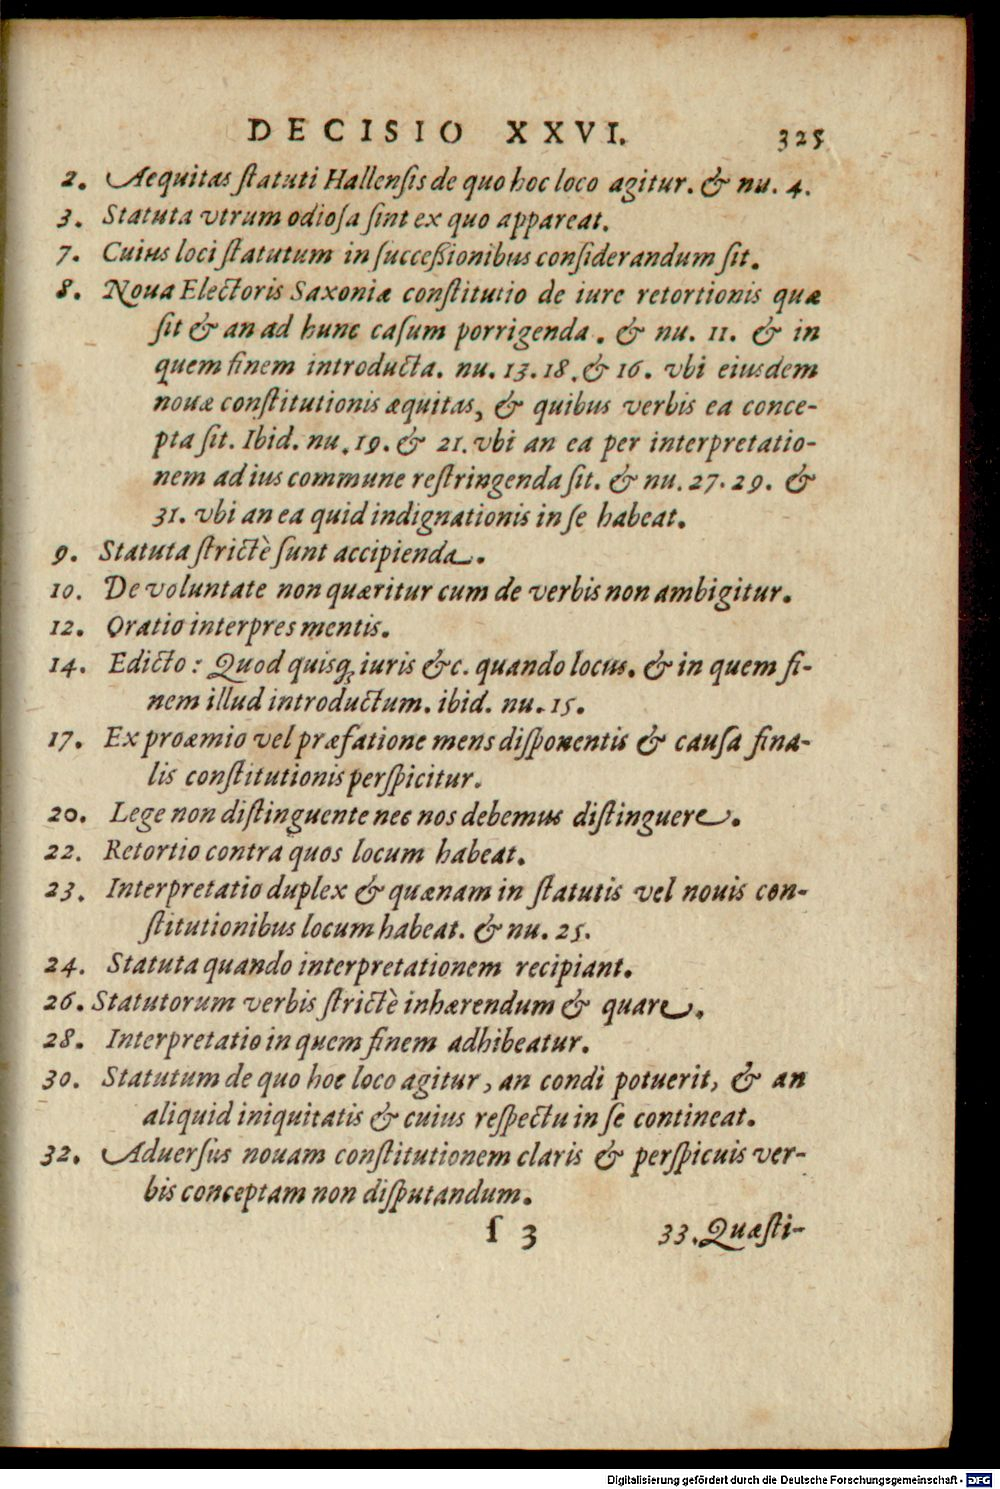 DECISIO XXVI. 325
2. Aequitas ſtatuti Hallenſis de quo hoc loco agitur. & nu. 4.
3. Statuta vtrum odioſa ſint ex quo appareat.
7. Cuius loci ſtatutum in ſucceſsionibus conſiderandum ſit.
8. Noua Electoris Saxoniæ conſtitutio de iure retortionis quæ
ſit & an ad hunc caſum porrigenda. & nu. 11. & in
quem finem introducta. nu. 13. 18. & 16. vbi eiusdem
nouæ conſtitutionis æquitas, & quibus verbis ea conce-
pta ſit. Ibid. nu. 19. & 21. vbi an ea per interpretatio-
nem ad ius commune reſtringenda ſit. & nu. 27. 29. &
31. vbi an ea quid indignationis in ſe habeat.
9. Statuta ſtrictè ſunt accipienda.
10. De voluntate non quæritur cum de verbis non ambigitur.
12. Oratio interpres mentis.
14. Edicto: Quod quisq; iuris &c. quando locus. & in quem fi-
nem illud introductum. ibid. nu. 15.
17. Ex proæmio vel præfatione mens diſponentis & cauſa fina-
lis conſtitutionis perſpicitur.
20. Lege non diſtinguente nec nos debemus diſtinguere.
22. Retortio contra quos locum habeat.
23. Interpretatio duplex & quænam in ſtatutis vel nouis con-
ſtitutionibus locum habeat. & nu. 25.
24. Statuta quando interpretationem recipiant.
26. Statutorum verbis ſtrictè inhærendum & quare.
28. Interpretatio in quem finem adhibeatur.
30. Statutum de quo hoc loco agitur, an condi potuerit, & an
aliquid iniquitatis & cuius reſpectu in ſe contineat.
32. Aduerſus nouam conſtitutionem claris & perſpicuis ver-
bis conceptam non diſputandum.
ſ 3 33. Quæſti-
Digitalisierung gefördert durch die Deutsche Forschungsgemeinschaft - DFG